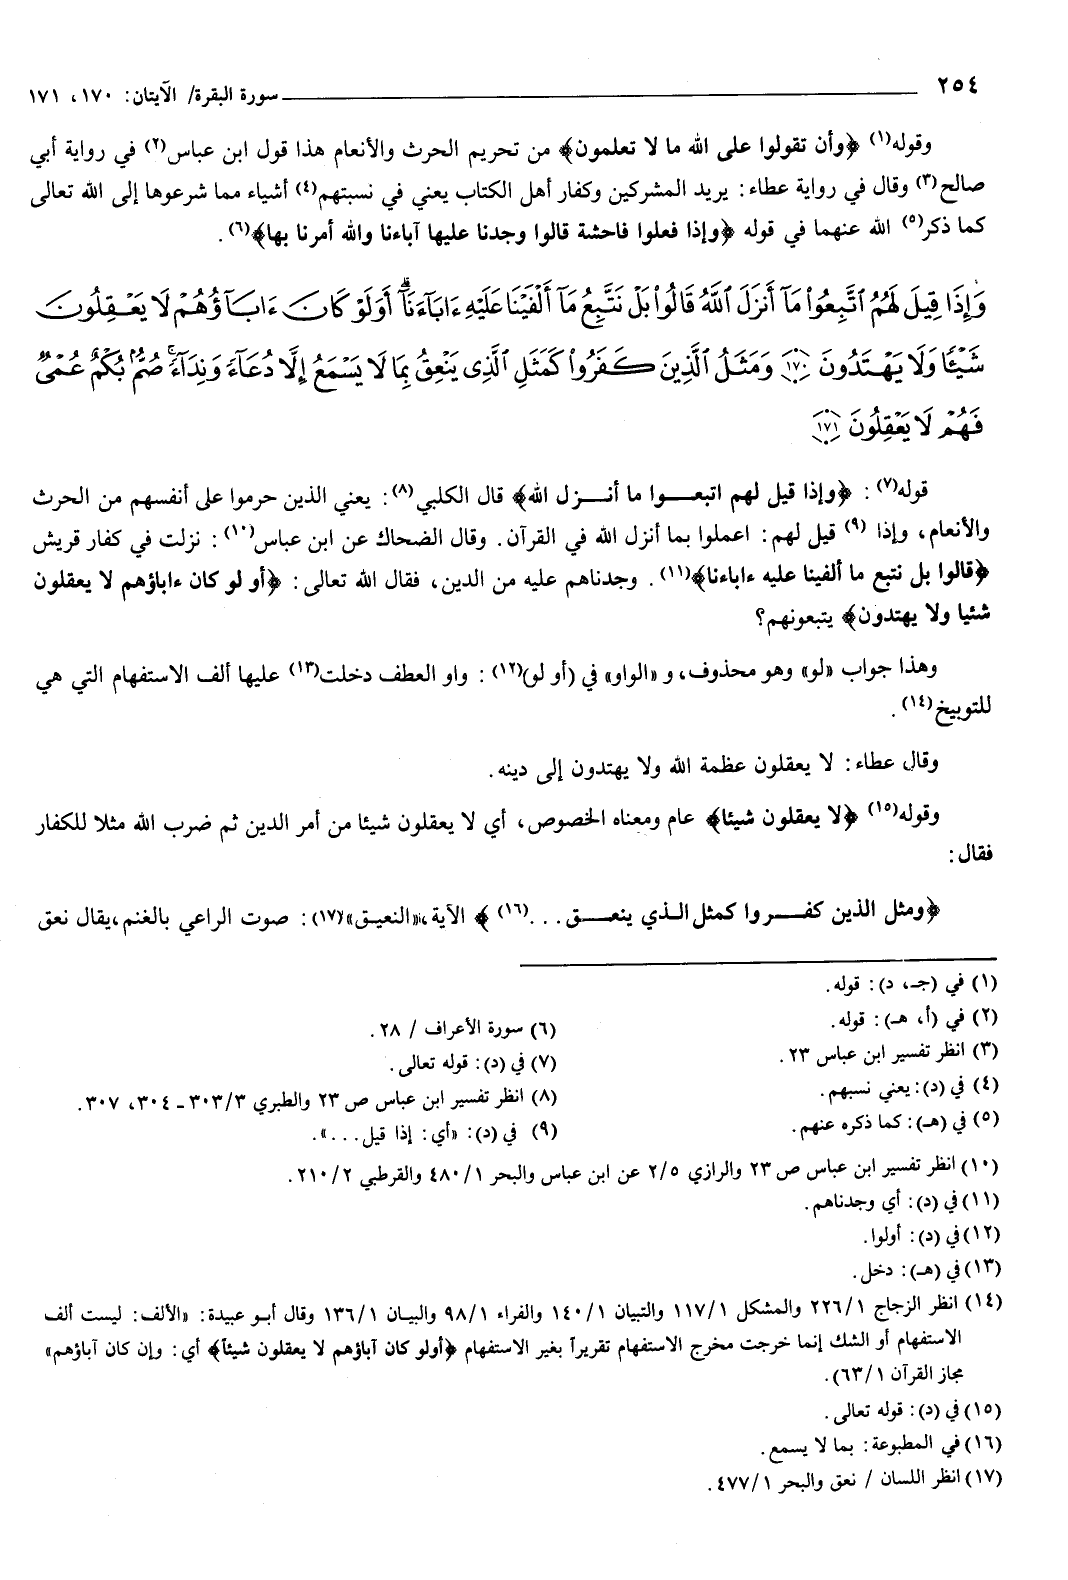 ٢٥٤ سورة البقرة/ الآيتان: ١٧٠، ١٧١
وقوله(١) ﴿وأن تقولوا على الله ما لا تعلمون﴾ من تحريم الحرث والأنعام هذا قول ابن عباس(٢) في رواية أبي
صالح(٣) وقال في رواية عطاء: يريد المشركين وكفار أهل الكتاب يعني في نسبتهم(٤) أشياء مما شرعوها إلى الله تعالى
كما ذكر(٥) الله عنهما في قوله ﴿وإذا فعلوا فاحشة قالوا وجدنا عليها آباءنا والله أمرنا بها﴾(٦).
وَإِذَا قِيلَ لَهُمُ ٱتَّبِعُواْ مَآ أَنزَلَ ٱللَّهُ قَالُواْ بَلْ نَتَّبِعُ مَآ أَلْفَيْنَا عَلَيْهِ ءَابَآءَنَآۗ أَوَلَوْ كَانَ ءَابَآؤُهُمْ لَا يَعْقِلُونَ
شَيْـًٔا وَلَا يَهْتَدُونَ ١٧٠ وَمَثَلُ ٱلَّذِينَ كَفَرُواْ كَمَثَلِ ٱلَّذِى يَنْعِقُ بِمَا لَا يَسْمَعُ إِلَّا دُعَآءً وَنِدَآءًۚ صُمُّۢ بُكْمٌ عُمْىٌ
فَهُمْ لَا يَعْقِلُونَ ١٧١
قوله(٧): ﴿وإذا قيل لهم اتبعـــوا ما أنـــزل الله﴾ قال الكلبي(٨): يعني الذين حرموا على أنفسهم من الحرث
والأنعام، وإذا (٩) قيل لهم: اعملوا بما أنزل الله في القرآن. وقال الضحاك عن ابن عباس(١٠): نزلت في كفار قريش
﴿قالوا بل نتبع ما ألفينا عليه ءاباءنا﴾(١١). وجدناهم عليه من الدين، فقال الله تعالى: ﴿أو لو كان ءاباؤهم لا يعقلون
شئيا ولا يهتدون﴾ يتبعونهم؟
وهذا جواب «لو» وهو محذوف، و «الواو» في (أو لو)(١٢): واو العطف دخلت(١٣) عليها ألف الاستفهام التي هي
للتوبيخ(١٤).
وقال عطاء: لا يعقلون عظمة الله ولا يهتدون إلى دينه.
وقوله(١٥) ﴿لا يعقلون شيئا﴾ عام ومعناه الخصوص، أي لا يعقلون شيئا من أمر الدين ثم ضرب الله مثلا للكفار
فقال:
﴿ومثل الذين كفـــروا كمثل الـذي ينعـــق ...(١٦) ﴾ الآية، «النعيق»(١٧): صوت الراعي بالغنم،يقال نعق
(١) في (جـ، د): قوله.
(٢) في (أ، هـ): قوله.
(٣) انظر تفسير ابن عباس ٢٣.
(٤) في (د): يعني نسبهم.
(٥) في (هـ): كما ذكره عنهم.
(٦) سورة الأعراف / ٢٨.
(٧) في (د): قوله تعالى.
(٨) انظر تفسير ابن عباس ص ٢٣ والطبري ٣/ ٣٠٣ ـ ٣٠٤، ٣٠٧.
(٩) في (د): «أي: إذا قيل...».
(١٠) انظر تفسير ابن عباس ص ٢٣ والرازي ٢/٥ عن ابن عباس والبحر ١/ ٤٨٠ والقرطبي ٢/ ٢١٠.
(١١) في (د): أي وجدناهم.
(١٢) في (د): أولوا.
(١٣) في (هـ): دخل.
(١٤) انظر الزجاج ١/ ٢٢٦ والمشكل ١/ ١١٧ والتبيان ١/ ١٤٠ والفراء ١/ ٩٨ والبيـان ١/ ١٣٦ وقال أبـو عبيدة: «الألف: ليست ألف
الاستفهام أو الشك إنما خرجت مخرج الاستفهام تقريراً بغير الاستفهام ﴿أولو كان آباؤهم لا يعقلون شيئاً﴾ أي: وإن كان آباؤهم»
مجاز القرآن ١/ ٦٣).
(١٥) في (د): قوله تعالى.
(١٦) في المطبوعة: بما لا يسمع.
(١٧) انظر اللسان / نعق والبحر ١/ ٤٧٧.